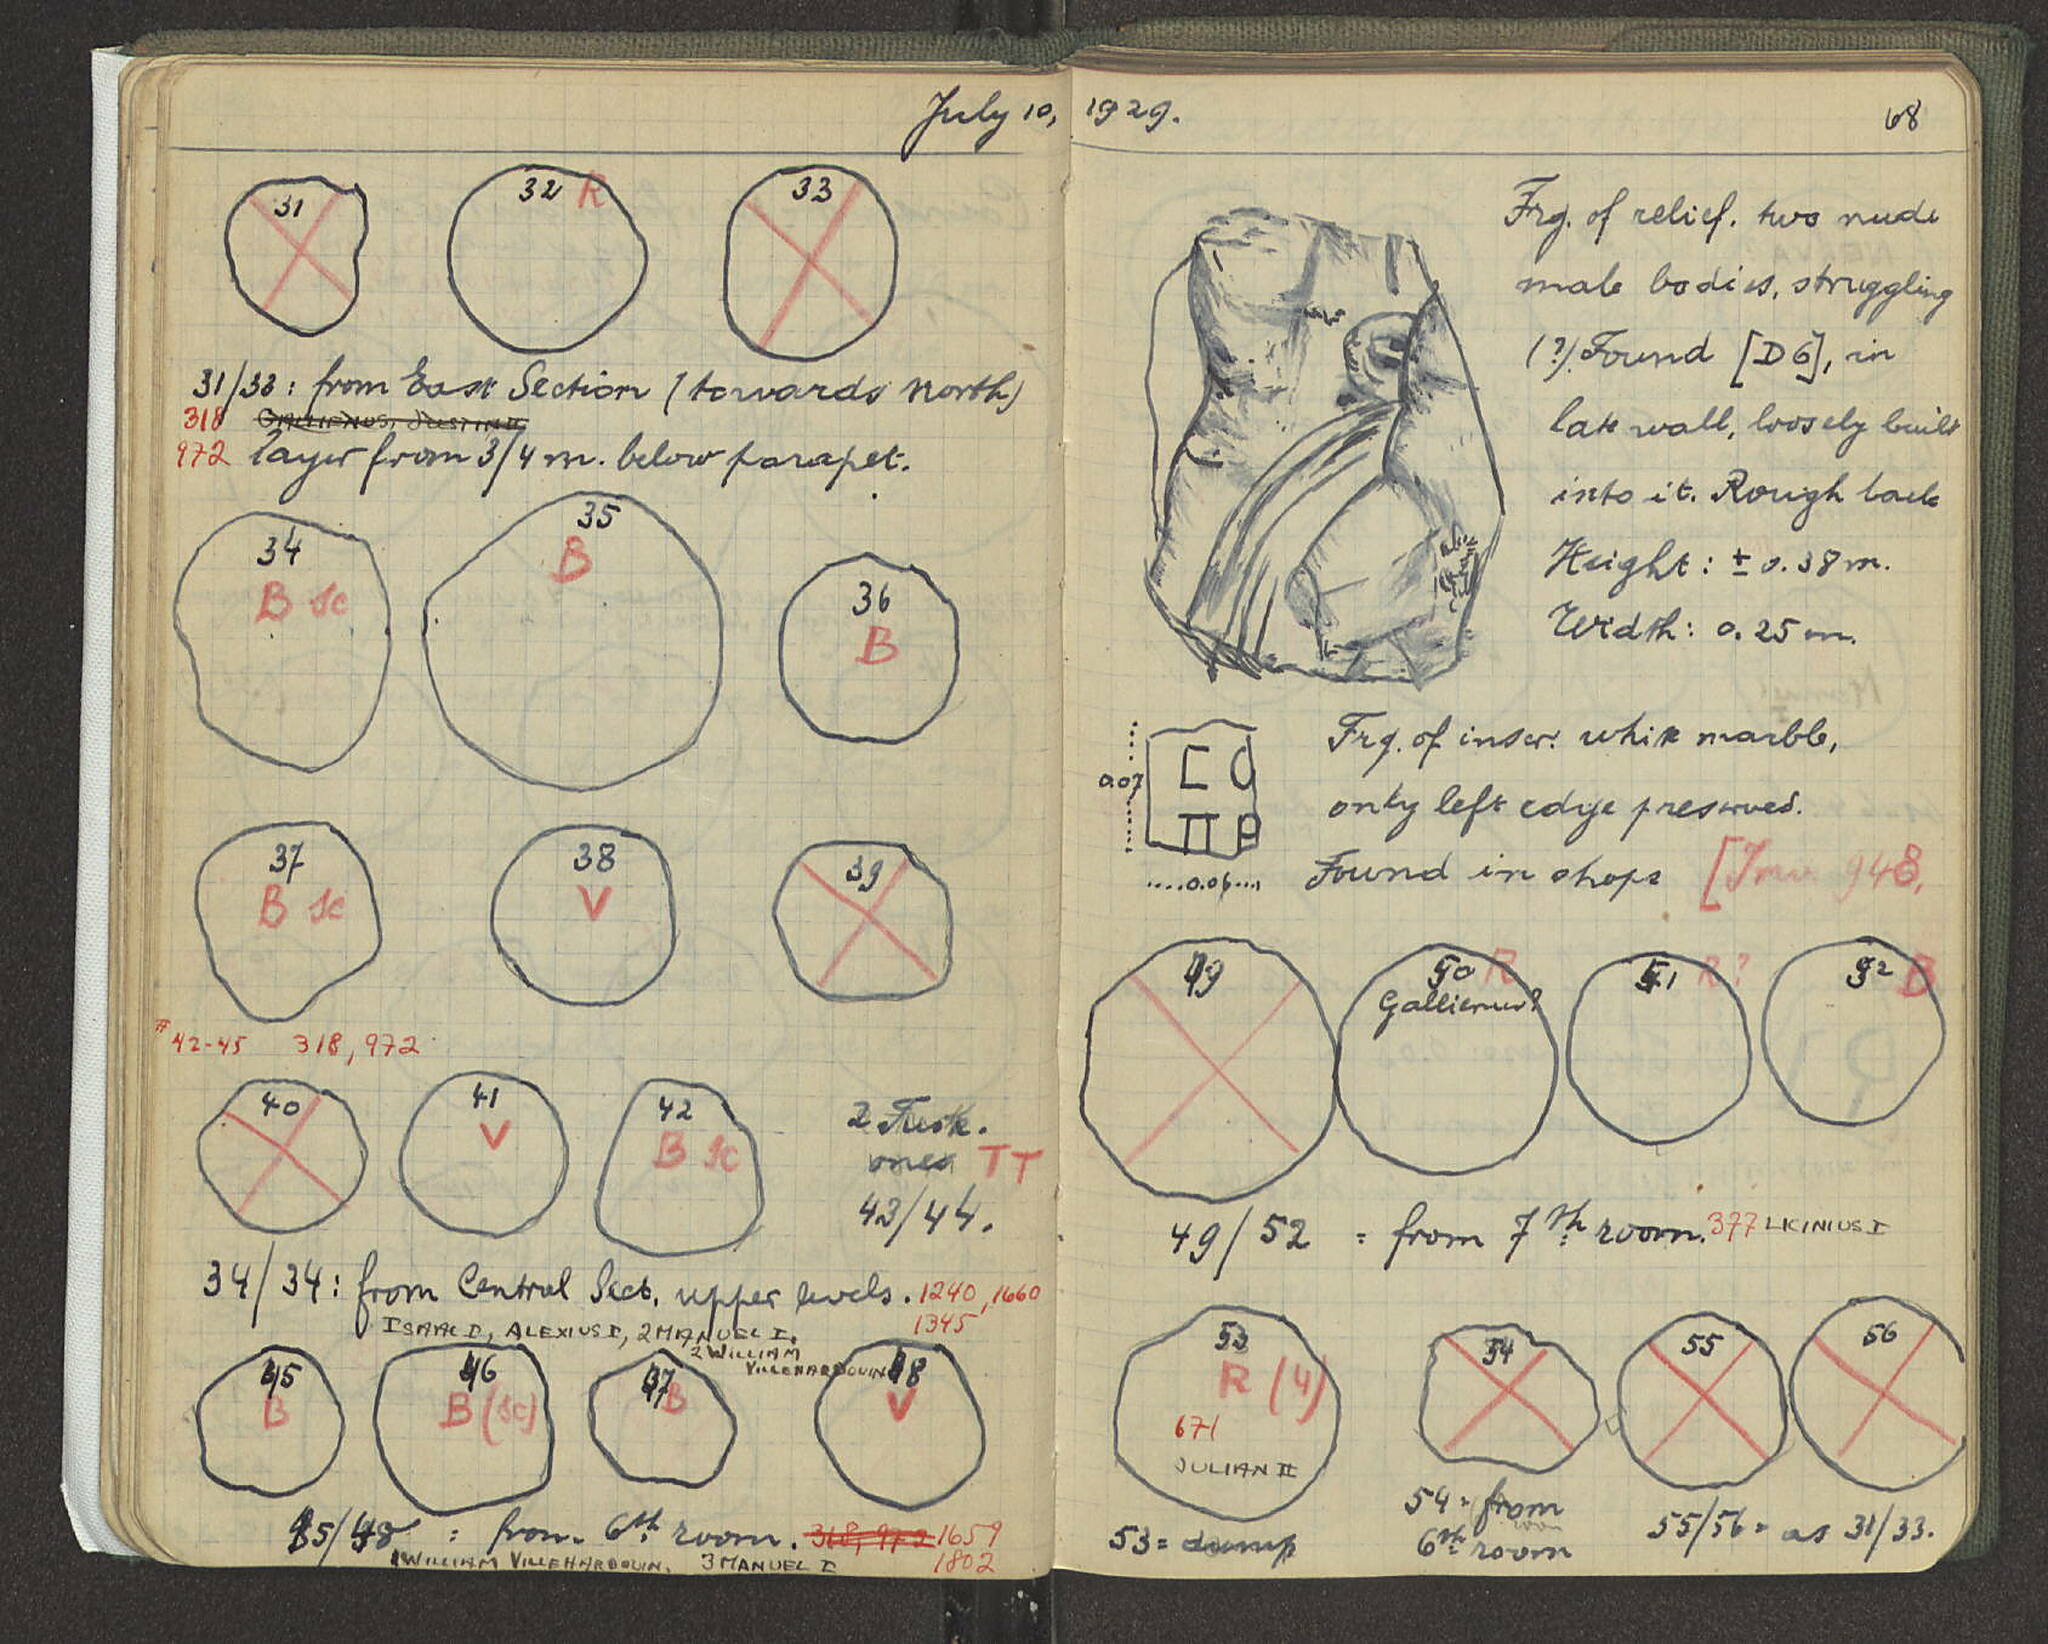 July 10, 1929.
68
31
32 R
33
31/33: from East Section (towards North)
318 GALLIENUS, JUSTIN II
972 layer from 3/4 m. below parapet.
34
B sc
35
B
36
B
37
B sc
38
V
39
# 42-45 318, 972
40
41
V
42
B sc
2 Turk.
ones TT
43/44.
34/34: from Central Sect. upper levels. 1240, 1660
1345
ISAAC II, ALEXIUS I, 2 MANUEL I,
2 WILLIAM
VILLEHARDOUIN
45
B
46
B (sc)
47
B
48
V
45/48 : from 6th room. 318, 972 1659
1802
1 WILLIAM VILLEHARDOUIN, 3 MANUEL I
Frg. of relief. two nude
male bodies, struggling
(?). Found [D6], in
late wall, loosely built
into it. Rough back
Height: ± 0.38 m.
Width: 0.25 m.
0.07
0.06
Frg. of inscr. white marble,
only left edge preserved.
Found in shops [Inv. 948,
49
50 R
Gallienus?
51 R?
52 B
49/52 = from 7th room. 377 LICINIUS I
53
R (4)
671
JULIAN II
54
55
56
53 = dump
54 = from
6th room
55/56 = as 31/33.